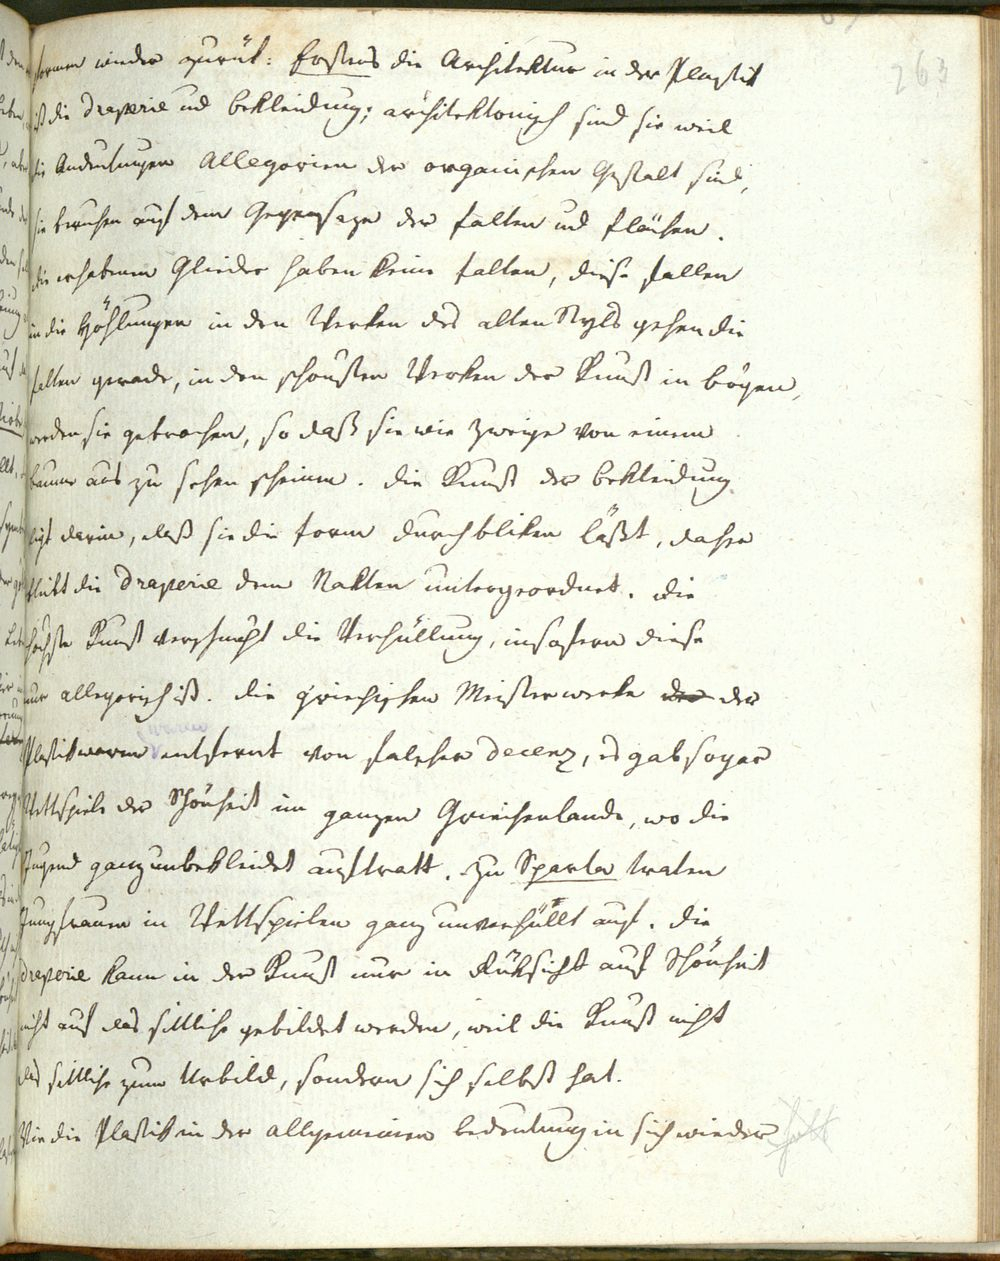 263
formen wieder zurük: Erstens die Architektur in der Plastik
ist die Draperie und bekleidung; architektonisch sind sie weil
die Andeutungen Allegorien der organischen Gestalt sind,
sie beruhen auf dem Gegensaze der falten und flächen.
die erhabenen Glieder haben keine falten, diese fallen
in die Höhlungen in den Werken des alten Styls gehen die
falten gerade, in den schönsten Werken der Kunst in bögen,
werden sie gebrochen, so daß sie wie Zweige von einem
baume aus zu sehen scheinen. die Kunst der bekleidung
ligt darin, daß sie die form durchbliken läßt, daher
bleibt die Draperie dem Nakten untergeordnet. die
höchste Kunst verschmäht die Verhüllung, insofern diese
nur allegorisch ist. die griechischen Meisterwerke der der
Plastik waren entfernt von falscher Decenz, es gab sogar
Wettspiele der Schönheit im ganzen Griechenlande, wo die
Jugend ganz unbekleidet auftratt. zu Sparta traten
Jungfrauen in Wettspielen ganz unverhüllt auf. die
Draperie kann in der Kunst nur in Rüksicht auf Schönheit
nicht auf das sittliche gebildet werden, weil die Kunst nicht
das sittliche zum Urbild, sondern sich selbst hat.
Wie die Plastik in der allgemeinen bedeutung in sich wieder